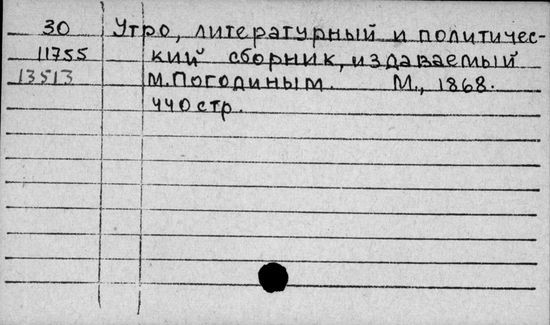 30 Утро, литературный и политичес-
11755 кий сборник, издаваемый
13513 М.Погодиным. М., 1868.
440 стр.